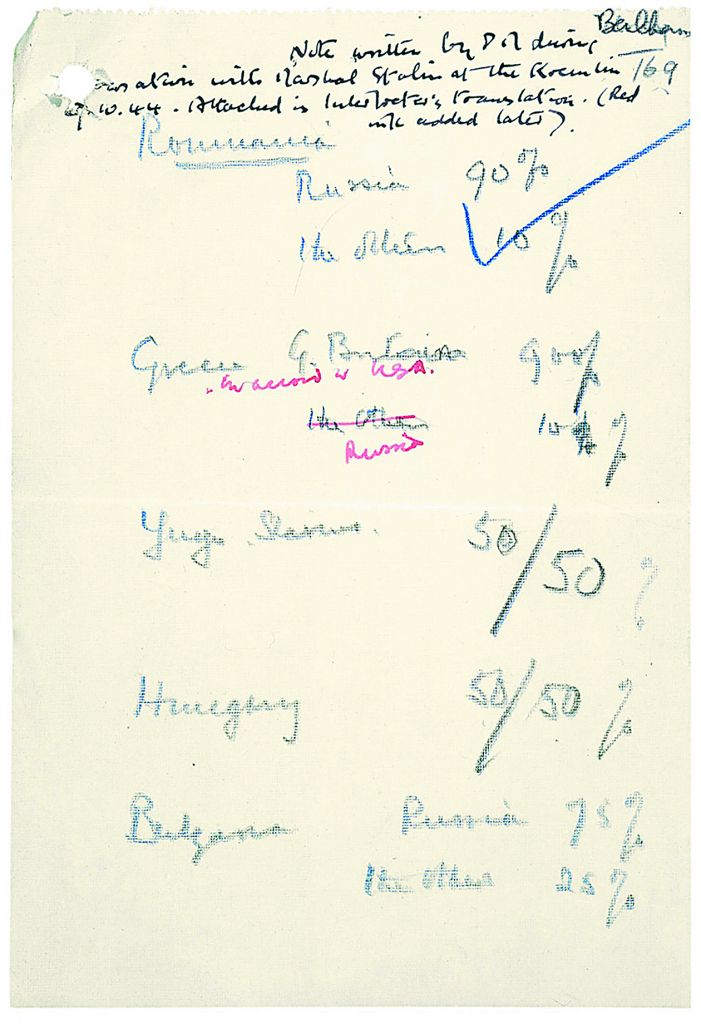 Note written by P M during
conversation with Marshal Stalin at the Kremlin 169
9.10.44. Attached is Interpreter's translation. (Red
ink added later).
Roumania
Russia 90%
The others 10%
Greece G. Britain 90%
in accord w USA.
The others 10%
Russia
Yugoslavia 50/50 %
Hungary 50/50 %
Bulgaria Russia 75%
The others 25%